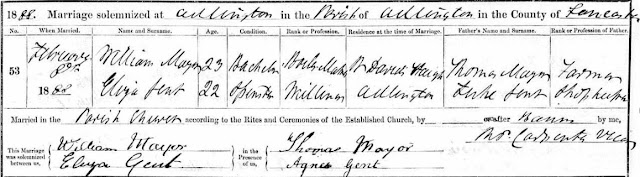 1888. Marriage solemnized at Adlington in the Parish of Adlington in the County of Lancaster
No. When Married. Name and Surname. Age. Condition. Rank or Profession. Residence at the time of Marriage. Father's Name and Surname. Rank or Profession of Father.
53 February 8th 1888 William Mayor 23 Bachelor St Davids Haigh Thomas Mayor Farmer
Eliza Gent 22 Spinster Milliner Adlington Luke Gent Shopkeeper
Married in the Parish Church according to the Rites and Ceremonies of the Established Church, by or after Banns by me,
This Marriage was solemnized between us, William Mayor Eliza Gent in the Presence of us, Thomas Mayor Agnes Gent Thos Carpenter Vicar